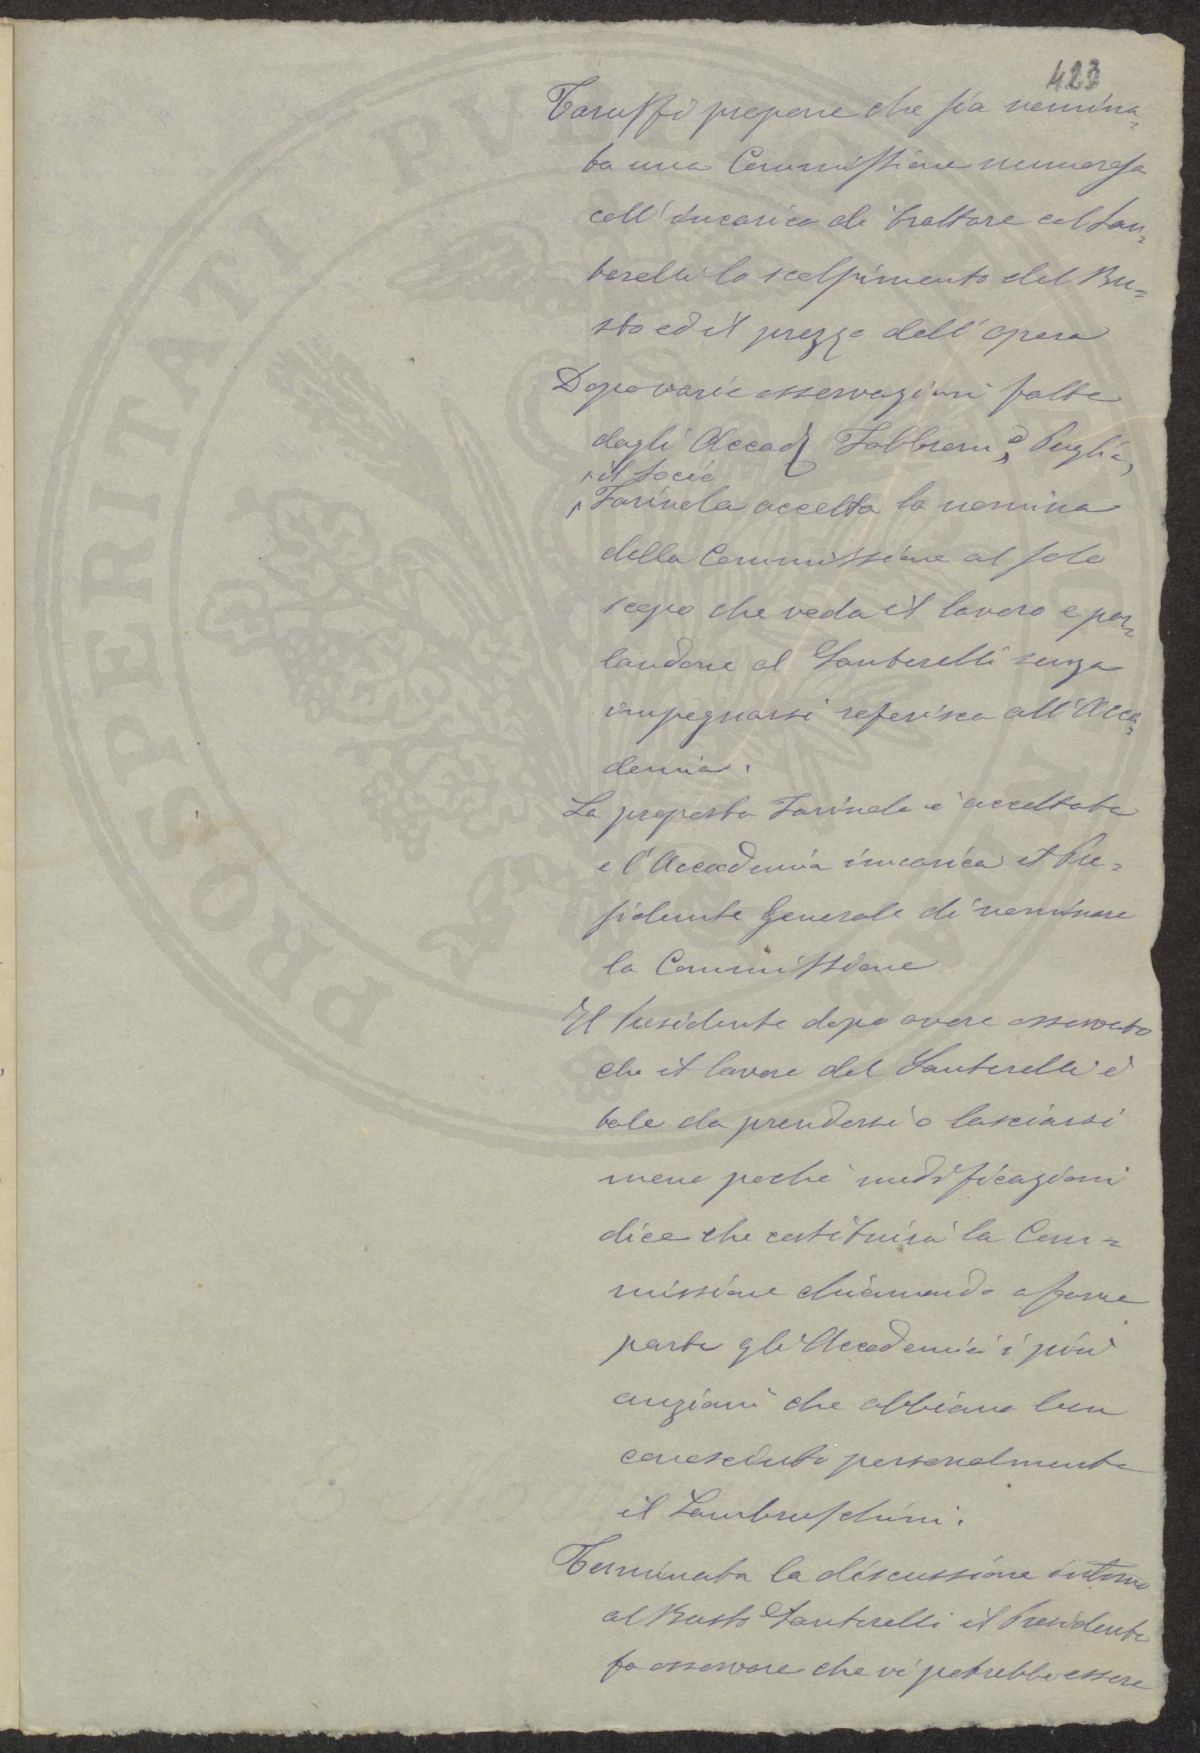 423
Taruffi propone che sia nomina=
ta una Commissione numerosa
coll'incarico di trattare col San=
terelli lo scolpimento del Bu=
sto ed il prezzo dell'opera
Dopo varie osservazioni fatte
dagli Accad Fabbroni, e Puglia,
il Socio
Farinola accetta la nomina
della Commissione al solo
scopo che veda il lavoro e par=
landone al Santerelli senza
impegnarsi referisca all'Acca=
demia.
La proposta Farinola è accettata
e l'Accademia incarica il Pre=
sidente Generale di nominare
la Commissione
Il Presidente dopo avere osservato
che il lavoro del Santerelli è
tale da prendersi o lasciarsi
meno poche modificazioni
dice che costituirà la Com=
missione chiamando a farne
parte gli Accademici i più
anziani che abbiano ben
conosciuto personalmente
il Lambruschini.
Terminata la discussione intorno
al Busto Santerelli il Presidente
fa osservare che vi potrebbe essere
PROSPERITATI PUBL